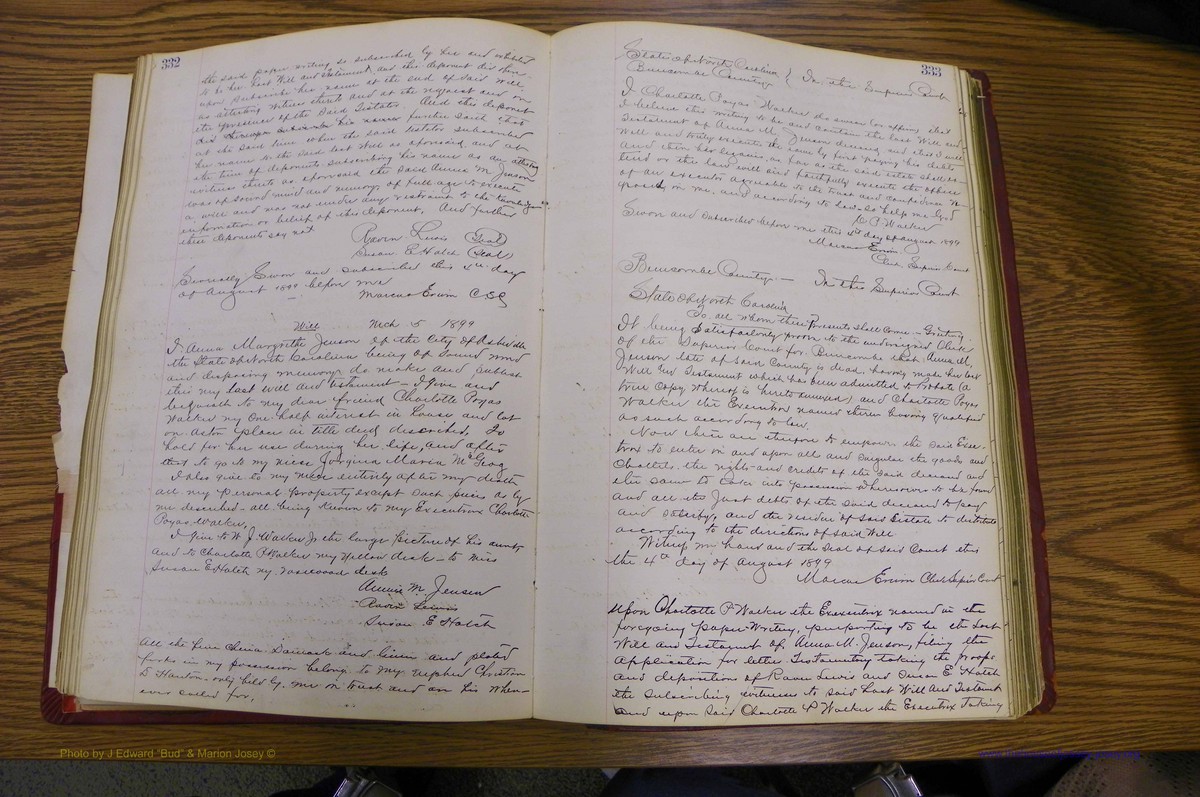 332
the said paper writing so subscribed by her and exhibited
to be her Last Will and testament, and this deponent did there-
upon subscribe his name at the end of said Will
as attesting witness thereto and at the request and in
the presence of the said Testator. And this deponent
further saith that
at the said time when the said testator subscribed
her name to the said last Will as aforesaid and at
the time of deponents subscribing his name as an attesting
witness thereto as aforesaid the said Anna M. Jenson
was of sound mind and memory of full age to execute
a will and was not under any restraint to the knowledge
information or belief of this deponent, And further
these deponents say not
Raven Lewis (Seal)
Susan E Hatch (Seal)
Severally Sworn and subscribed this 4th day
of August 1899 before me
Marcus Erwin C.S.C.
Will Mch 5 1899
I Anna Margrethe Jenson of the City of Asheville
the State of North Carolina being of sound mind
and disposing memory do make and publish
this my last will and testament – I give and
bequeath to my dear friend Charlotte Poyas
Walker my One half interest in house and lot
on Aston place in title deed described, To
hold for her use during her life, and after
that to go to my niece Maria
I also give to my niece entirely after my death
all my personal property except such pieces as by
me described – all being known to my Executrix Charlotte
Poyas Walker.
I give to W. J. Walker Jr the large picture of his aunt
and to Charlotte P Walker my yellow desk – to Miss
Susan E Hatch my rosewood desk
Annie M. Jensen
Raven Lewis
Susan E Hatch
All the fine China Damask and linen and plated
forks in my possession belong to my nephew Christian
D – only held by me in trust and are his when-
ever called for.
333
State of North Carolina } In the Superior Court
Buncombe County
I Charlotte Poyas Walker do swear (or affirm) that
I believe this writing to be and contain the last Will and
testament of Anna M. Jenson deceased, and that I will
well and truly execute the same by first paying his debts
and then his legacies, as far as the said estate shall ex-
tend or the law will and faithfully execute the office
of an executor agreeable to the trust and confidence re-
posed in me, and according to law. So help me God
C. P. Walker
Sworn and subscribed before me this 4th day of August 1899
Marcus Erwin
Clerk Superior Court
Buncombe County. – In the Superior Court
State of North Carolina
To all whom these Presents Shall Come – Greeting
It being satisfactorily proven to the undersigned Clerk
of the Superior Court for Buncombe that Anna M,
Jenson late of said County is dead, having made her last
Will and Testament which has been admitted to Probate (a
true Copy whereof is hereto annexed) and Charlotte Poyas
Walker the Executrix named therein having qualified
as such according to law.
Now these are therefore to empower the said Exec-
trix to enter in and upon all and singular the goods and
Chattels, the rights and credits of the said deceased and
the same to take into possession wheresoever to be found
and all the just debts of the said deceased to pay
and satisfy, and the residue of said Estate to distribute
according to the directions of said Will
Witness my hand and the Seal of said Court this
the 4th day of August 1899
Marcus Erwin Clerk Superior Court
Upon Charlotte P Walker the Executrix named in the
foregoing paper-Writing, purporting to be the Last
Will and Testament of Anna M. Jenson, filing the
application for letters Testamentary taking the proofs
and deposition of Raven Lewis and Susan E. Hatch
the subscribing witnesses to said Last Will and Testament
and upon said Charlotte P Walker the Executrix taking
Photo by J Edward "Bud" & Marion Josey ©